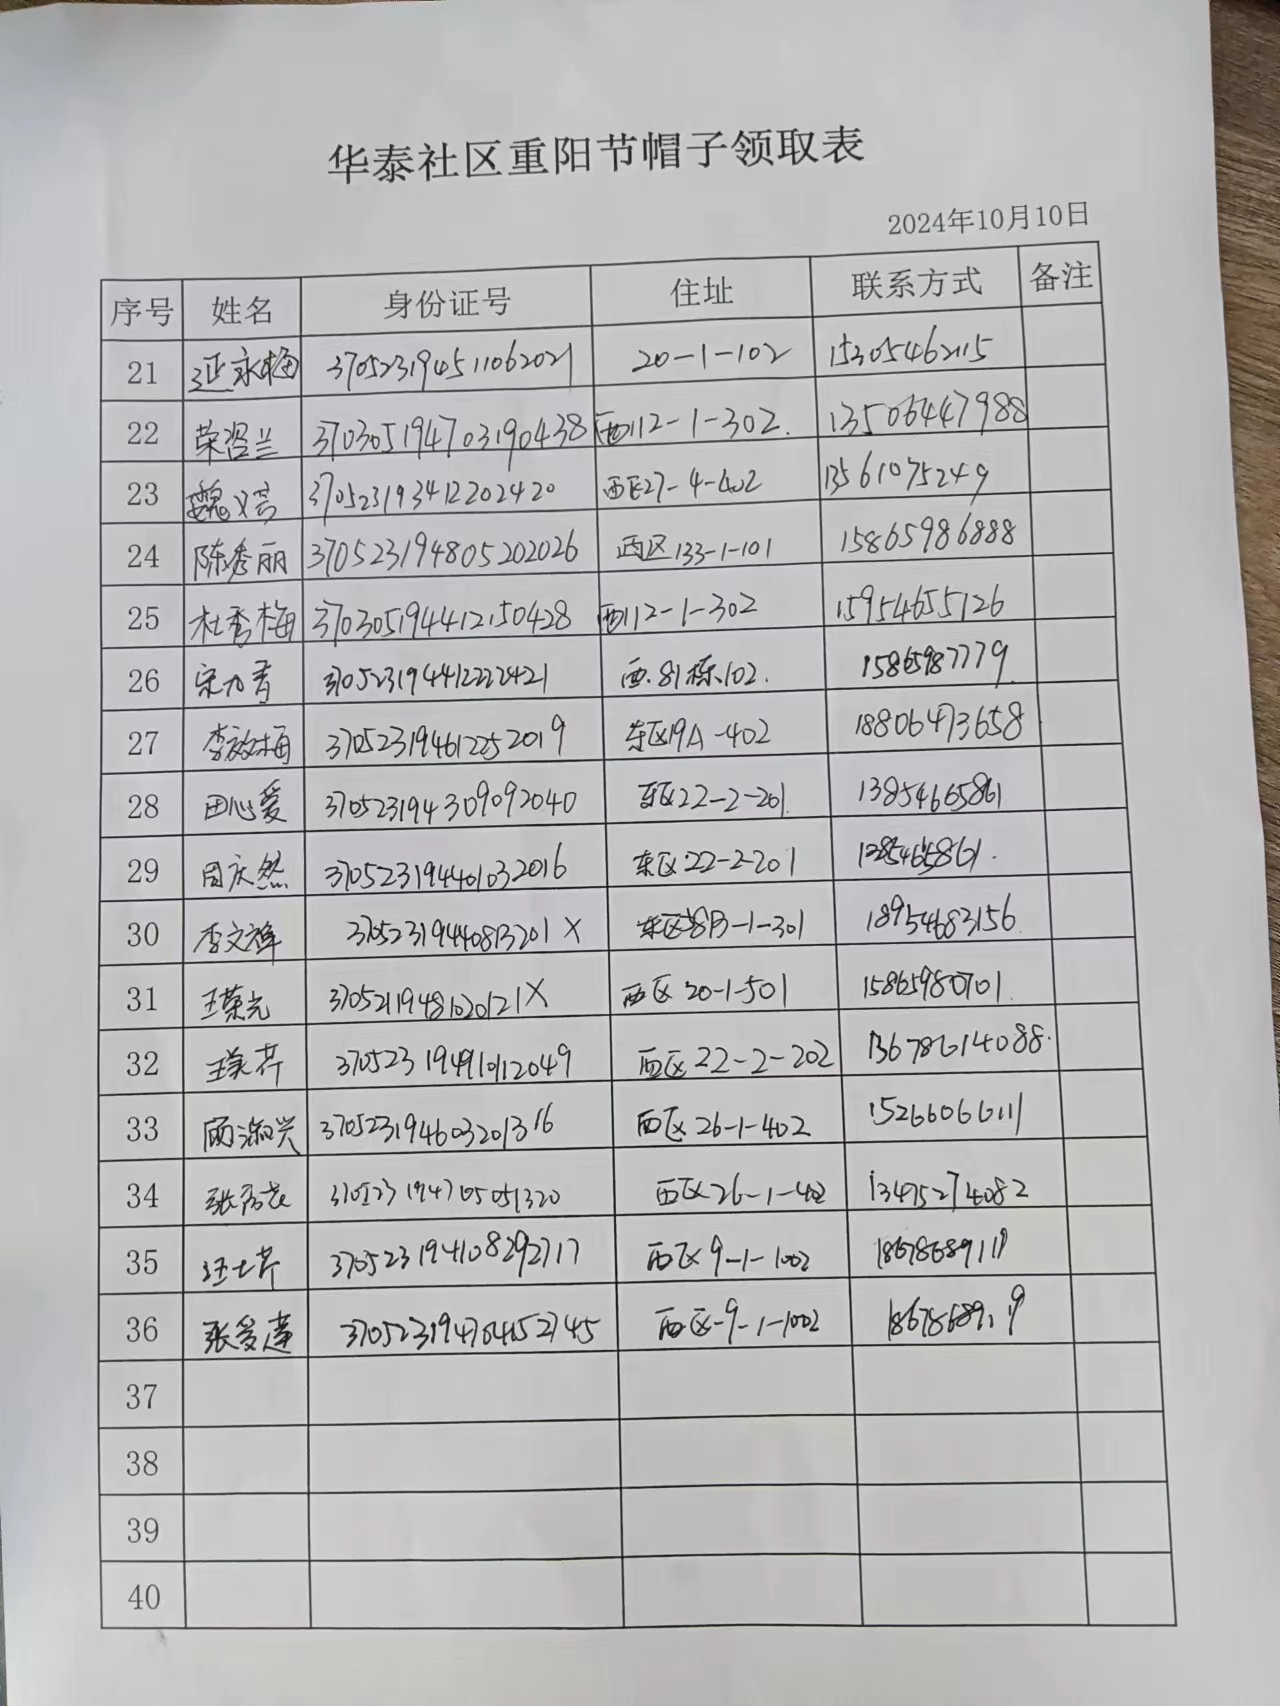 华泰社区重阳节帽子领取表
2024年10月10日
序号 姓名 身份证号 住址 联系方式 备注
21 延永梅 370523194511062021 20-1-102 15305462115
22 荣沿兰 370305194703190438 西112-1-302. 13506447988
23 魏义芳 370523193412202420 西区27-4-402 13561075249
24 陈秀丽 370523194805202026 西区133-1-101 15865986888
25 杜秀梅 370305194412150428 西112-1-302 15954655126
26 宋乃青 370523194412222421 西.81栋.102. 15865987779
27 李敏梅 370523194612252019 东区19A-402 18806473658
28 田心爱 370523194309092040 东区22-2-201 13854665861
29 周庆然 370523194401032016 东区22-2-201
30 李文祥 37052319440813201X 东区8B-1-301 18954683156
31 王荣光 西区20-1-501 15865980701
32 王美芹 370523194910112049 西区22-2-202 13678614088.
33 顾淑兴 370523194603201316 西区26-1-402 15266066111
34 张秀花 370523194705051320 西区26-1-402 13475274082
35 370523194108292717 西区9-1-1002 18678689119
36 张爱莲 370523194704152745 西区-9-1-1002 18678689119
37
38
39
40